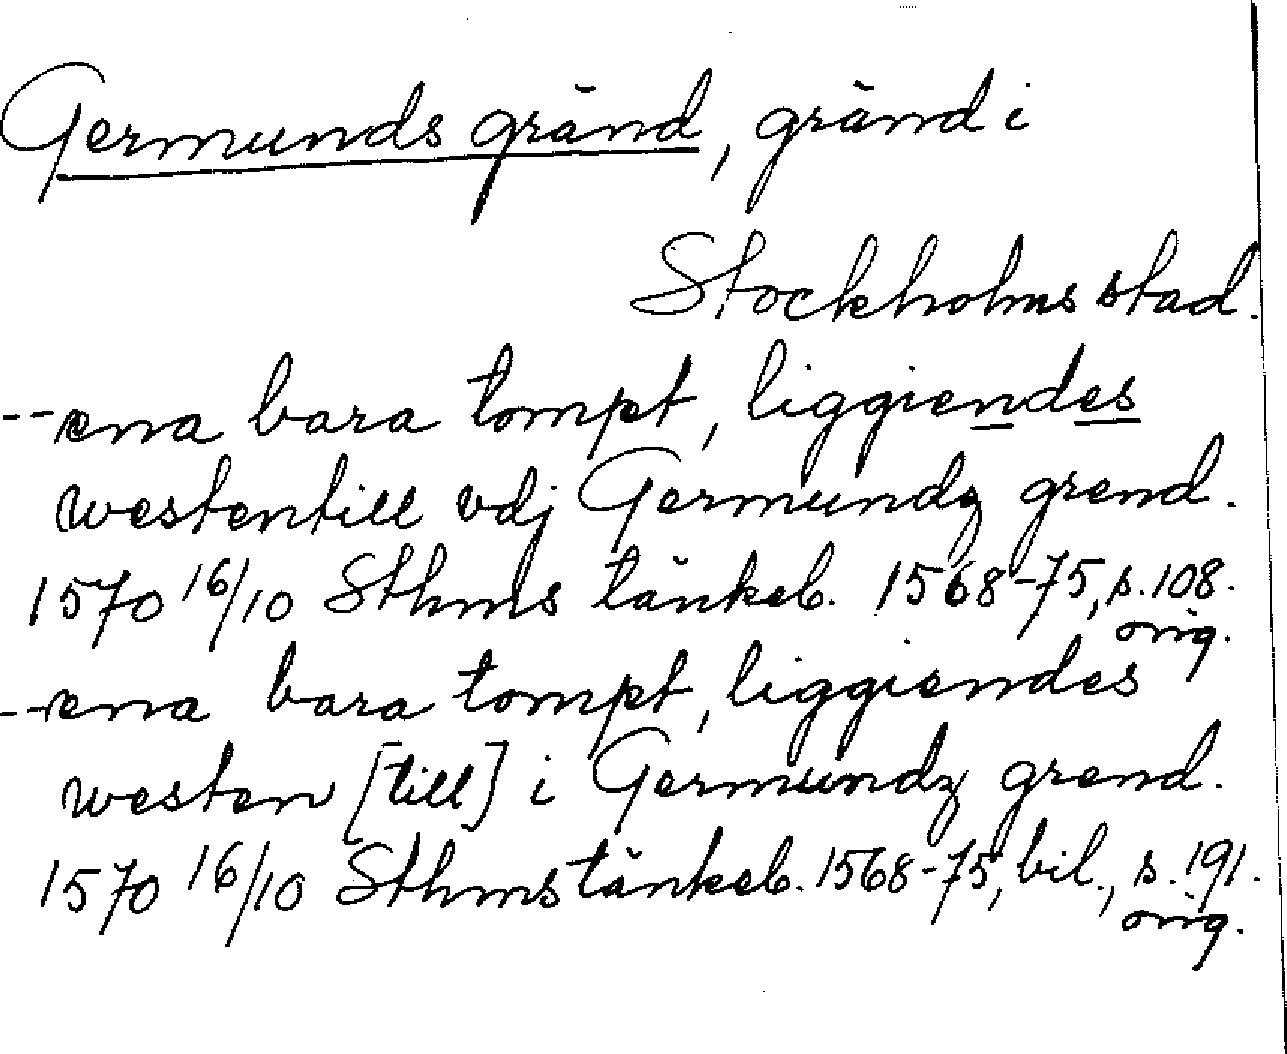 Germunds gränd, gränd i
Stockholms stad.
-- ena bara tompt, liggiendes
westentill vdj Germundz grend.
1570 16/10 Sthms tänkeb. 1568-75, s. 108.
orig.
-- ena bara tompt, liggiendes
westen [till] i Germundz grend.
1570 16/10 Sthms tänkeb. 1568-75, bil., s. 191.
orig.